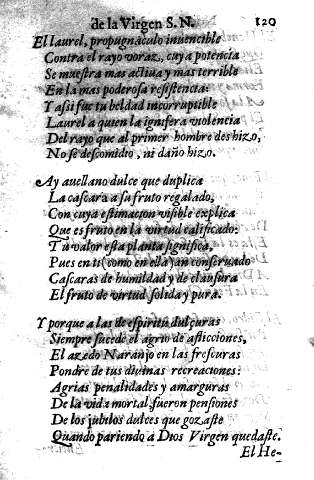 de la Virgen S. N. 120
El laurel, propugnaculo inuencible
Contra el rayo voraz, cuya potencia
Se muestra mas actiua y mas terrible
En la mas poderosa resistencia:
Y assi fue tu beldad incorruptible
Laurel a quien la ignifera violencia
Del rayo que al primer hombre deshizo,
No se descomidio, ni daño hizo.
Ay auellano dulce que duplica
La cascara a su fruto regalado,
Con cuya estimacion visible explica
Que es fruto en la virtud calificado:
Tu valor esta planta significa,
Pues en ti (como en ella) an conseruado
Cascaras de humildad y de clausura
El fruto de virtud solida y pura.
Y porque a las de espiritu dulçuras
Siempre sucede el agrio de aflicciones,
El azedo Naranjo en las frescuras
Pondre de tus diuinas recreaciones:
Agrias penalidades y amarguras
De la vida mortal fueron pensiones
De los jubilos dulces que gozaste
Quando pariendo a Dios Virgen quedaste.
El He-